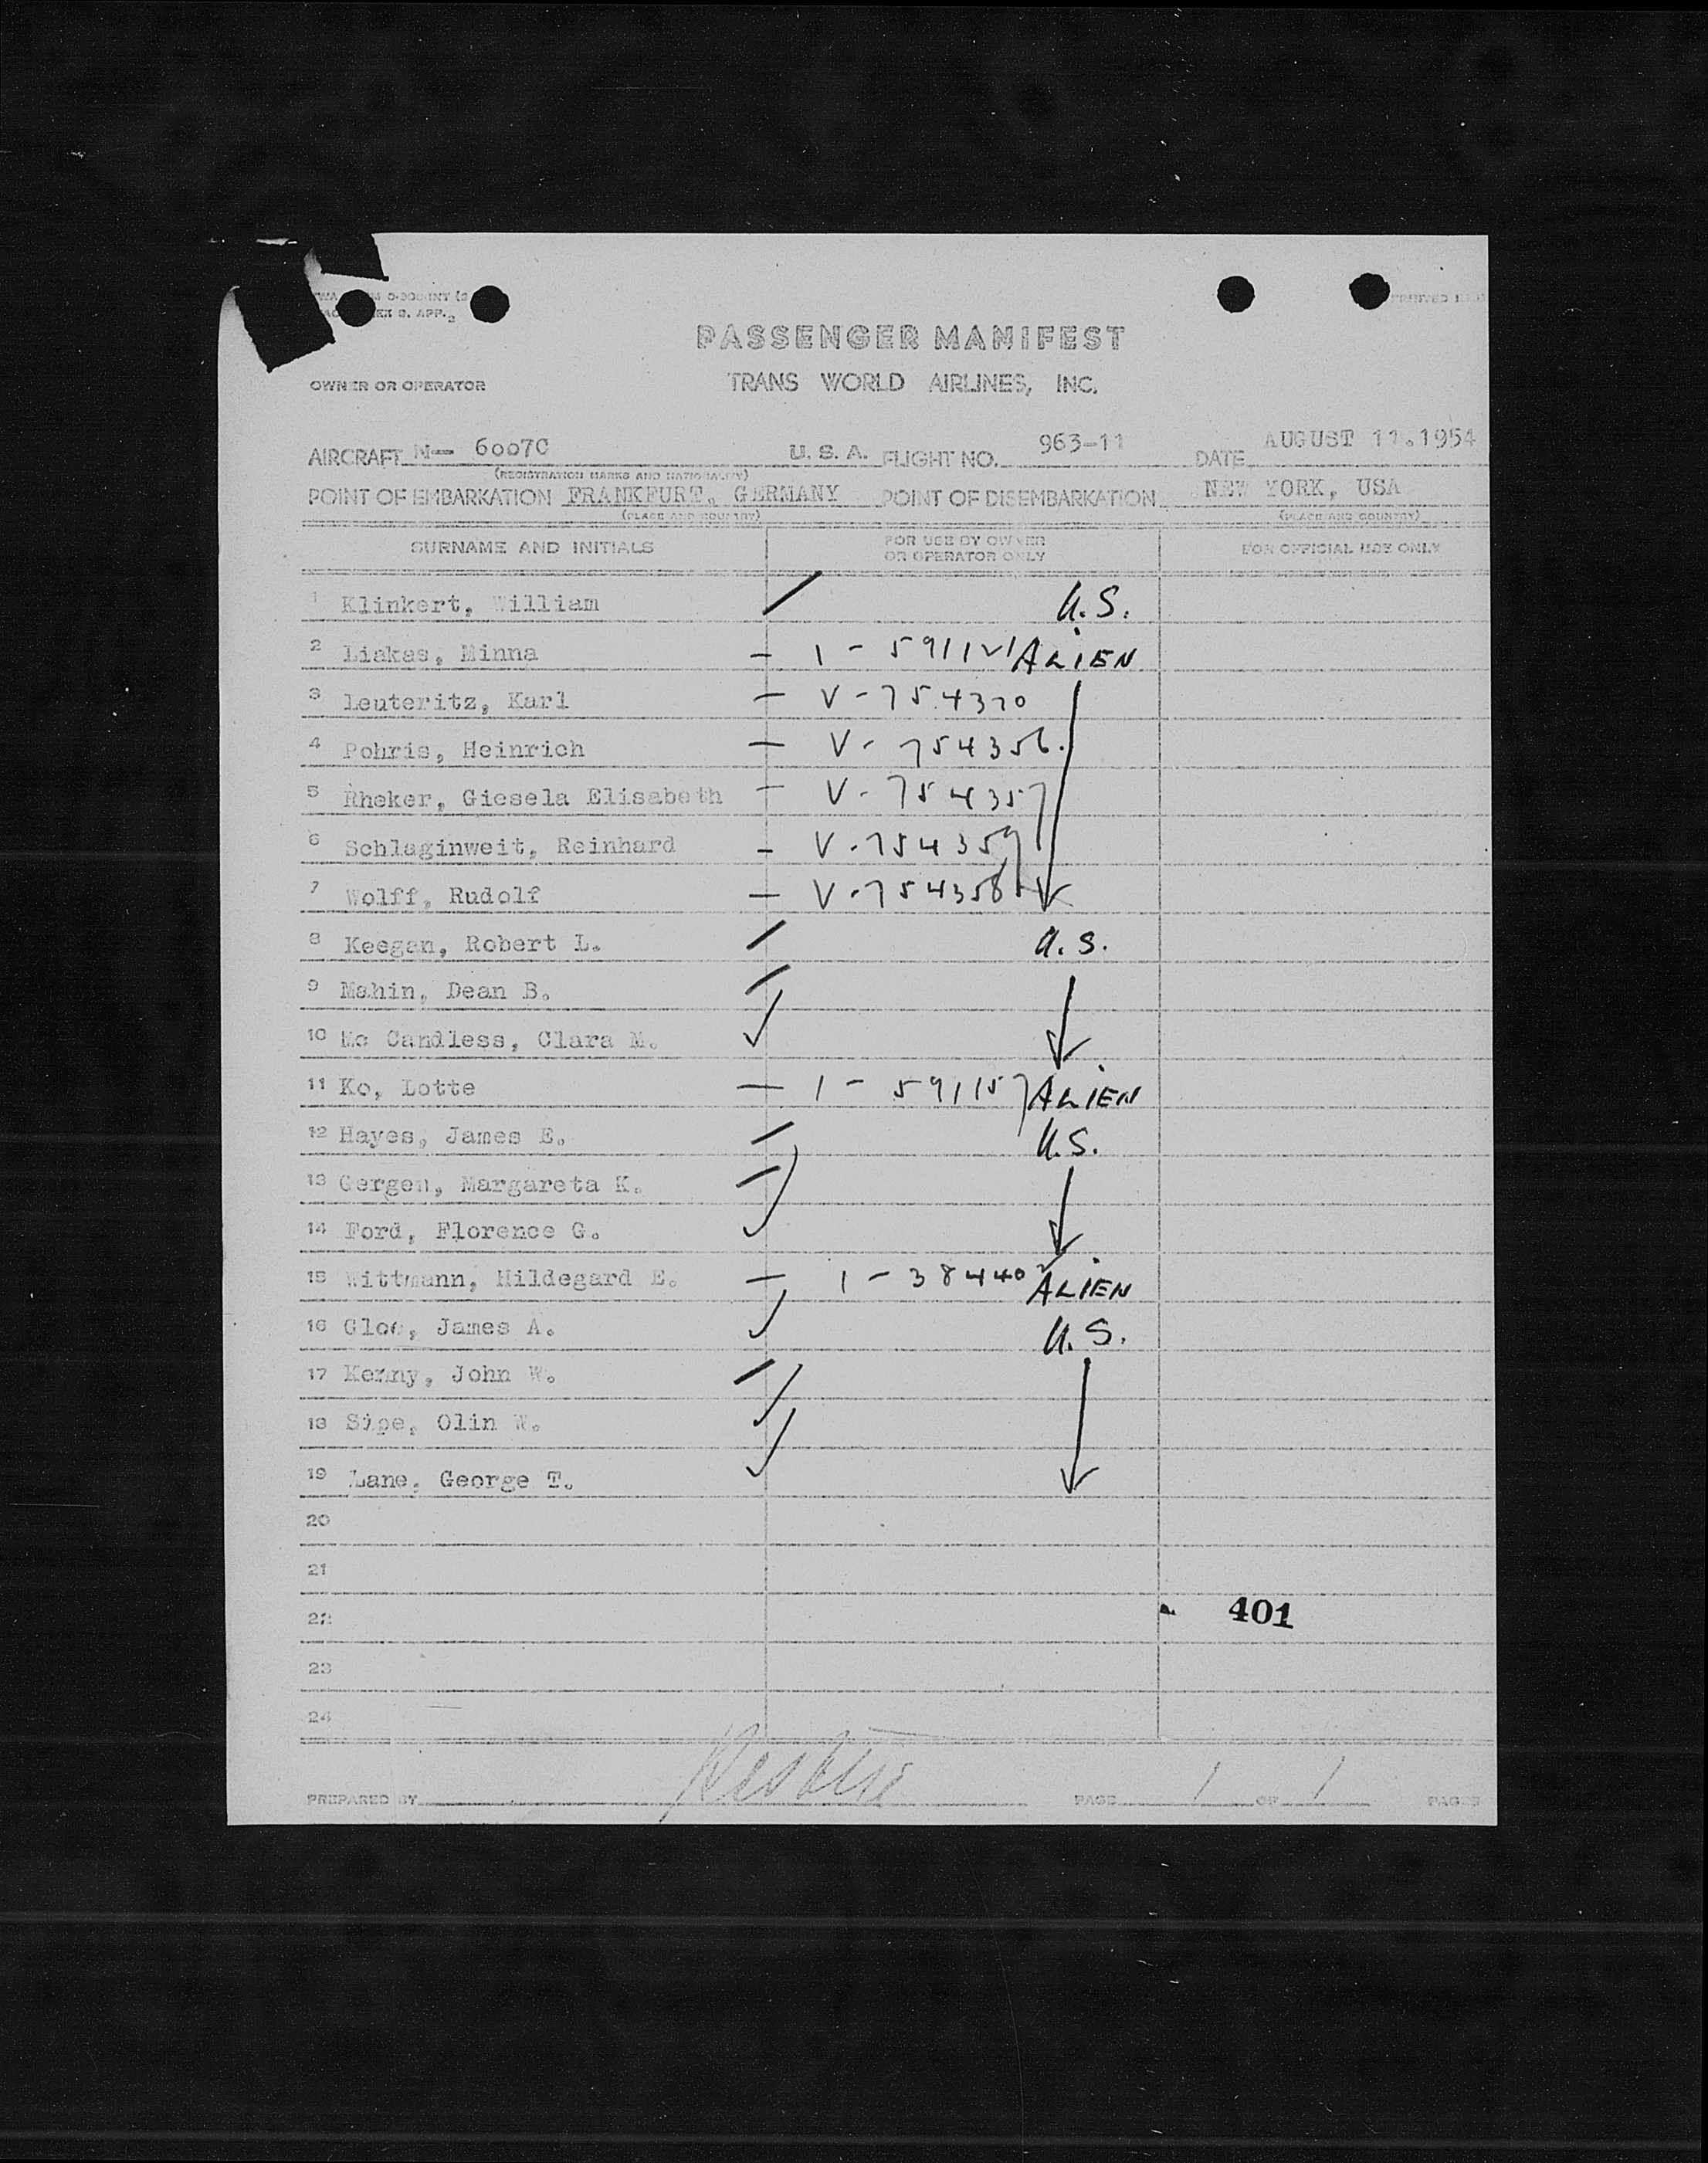 PRINTED IN U
PASSENGER MANIFEST
OWNER OR OPERATOR TRANS WORLD AIRLINES, INC.
AIRCRAFT N— 6007C U. S. A. FLIGHT NO. 963-11 DATE AUGUST 11.1954
(REGISTRATION MARKS AND NATIONALITY)
POINT OF EMBARKATION FRANKFURT, GERMANY POINT OF DISEMBARKATION NEW YORK, USA
(PLACE AND COUNTRY) (PLACE AND COUNTRY)
SURNAME AND INITIALS FOR USE BY OWNER OR OPERATOR ONLY FOR OFFICIAL USE ONLY
1 Klinkert, William U.S.
2 Liakas, Minna — 1 - 591121 ALIEN
3 Leuteritz, Karl — V - 754370
4 Pohris, Heinrich — V - 754356
5 Rheker, Giesela Elisabeth — V - 754357
6 Schlaginweit, Reinhard — V - 754359
7 Wolff, Rudolf — V - 754358
8 Keegan, Robert L. U.S.
9 Mahin, Dean B.
10 Mc Candless, Clara M. ✓
11 Ko, Lotte — 1 - 591157 ALIEN
12 Hayes, James E. U.S.
13 Gergen, Margareta K.
14 Ford, Florence G. ✓
15 Wittmann, Hildegard E. — 1 - 384402 ALIEN
16 Gloe, James A. ✓ U.S.
17 Kenny, John W.
18 Sipe, Olin W. ✓
19 Lane, George T. ✓
20
21
22 401
23
24
PREPARED BY PAGE 1 OF 1 PAGES